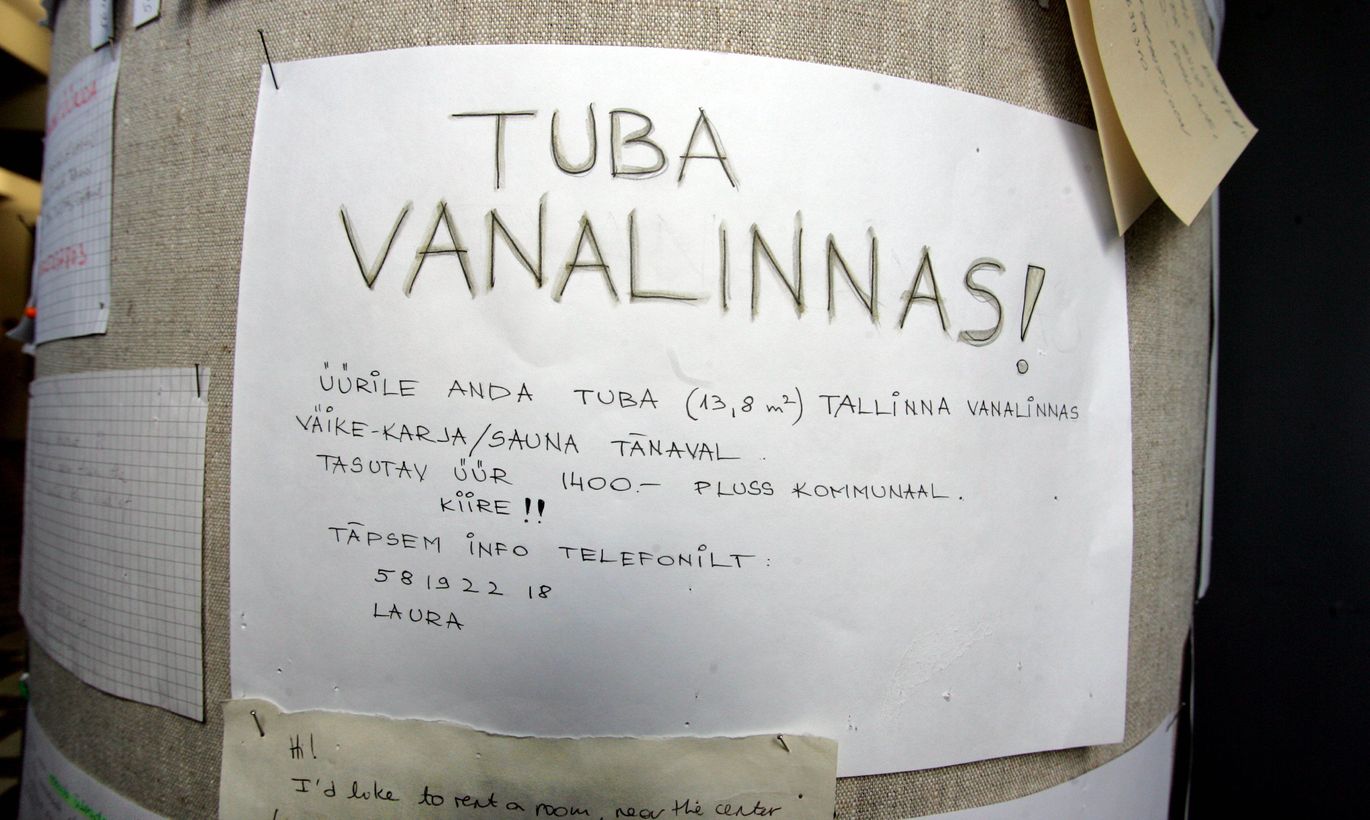 TUBA
VANALINNAS!
ÜÜRILE ANDA TUBA (13,8 m²) TALLINNA VANALINNAS
VÄIKE-KARJA/SAUNA TÄNAVAL.
TASUTAV ÜÜR 1400.- PLUSS KOMMUNAAL.
KIIRE!!
TÄPSEM INFO TELEFONILT:
581922 18
LAURA
Hi!
I'd like to rent a room, near the center